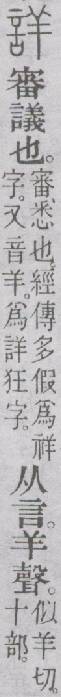 詳審議也。審、悉也。經傳多假為祥
字。又音羊。為詳狂字。从言。羊聲。似羊切。
十部。